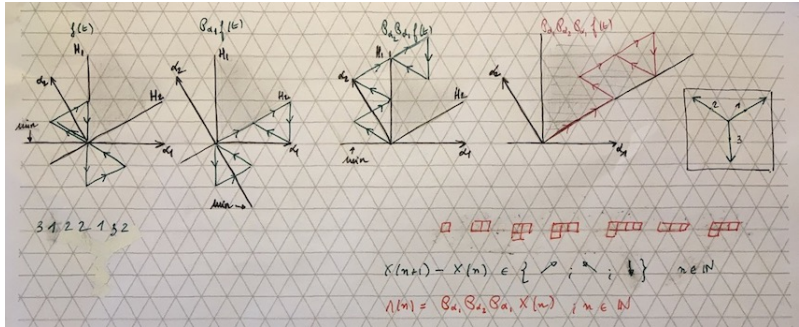 f(t)
H₁
α₂
H₂
min
α₁
P_α₁ f(t)
H₁
α₂
H₂
α₁
min →
P_α₂ P_α₁ f(t)
H₁
α₂
H₂
min
α₁
P_α₁ P_α₂ P_α₁ f(t)
α₂
α₁
2 1
3
3 1 2 2 1 3 2
X(n+1) - X(n) ∈ { ↗ ; ↖ ; ↓ } n ∈ ℕ
Λ(n) = P_α₁ P_α₂ P_α₁ X(n) ; n ∈ ℕ